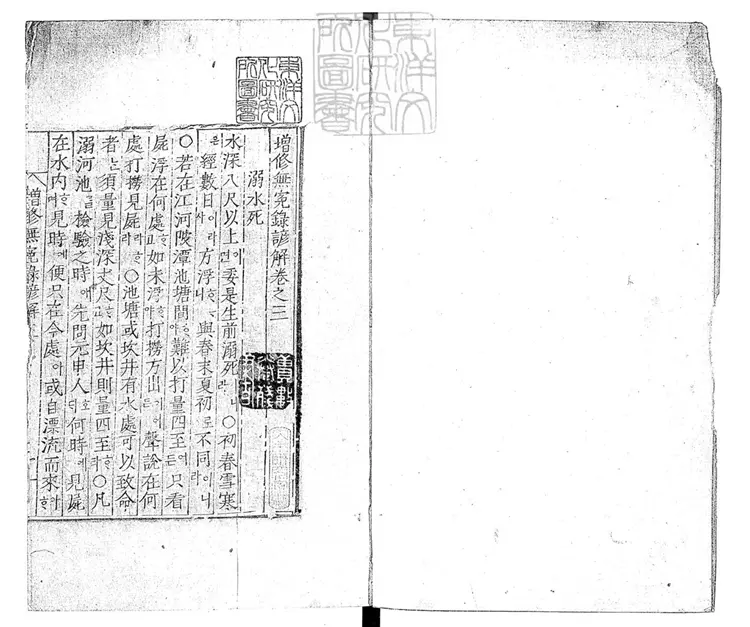 東洋文
化研究
所圖書
東洋文
化研究
所圖書
增修無冤錄諺解卷之三
溺水死
水深八尺以上이면委是生前溺死라니○初春雪寒
은經數日이라사方浮ᄒᆞ니與春末夏初로不同이니라
○若在江河陂潭池塘間ᄒᆞ야難以打量四至어든只看
屍浮在何處ᄒᆞ고如未浮ᄒᆞ야打撈方出이어든聲說在何
處打撈見屍라ᄒᆞ라○池塘或坎井有水處可以致命
者ᄂᆞᆫ須量見淺深丈尺ᄒᆞ고如坎井則量四至ᄒᆞ라○凡
溺河池를檢驗之時에先問元申人호ᄃᆡ何時에見屍
在水內며見時에便只在今處아或自漂流而來아
增修無冤錄諺解